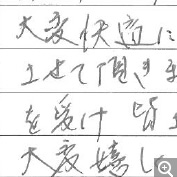 大変快適に
させて頂きま
を受け 皆
大変嬉し